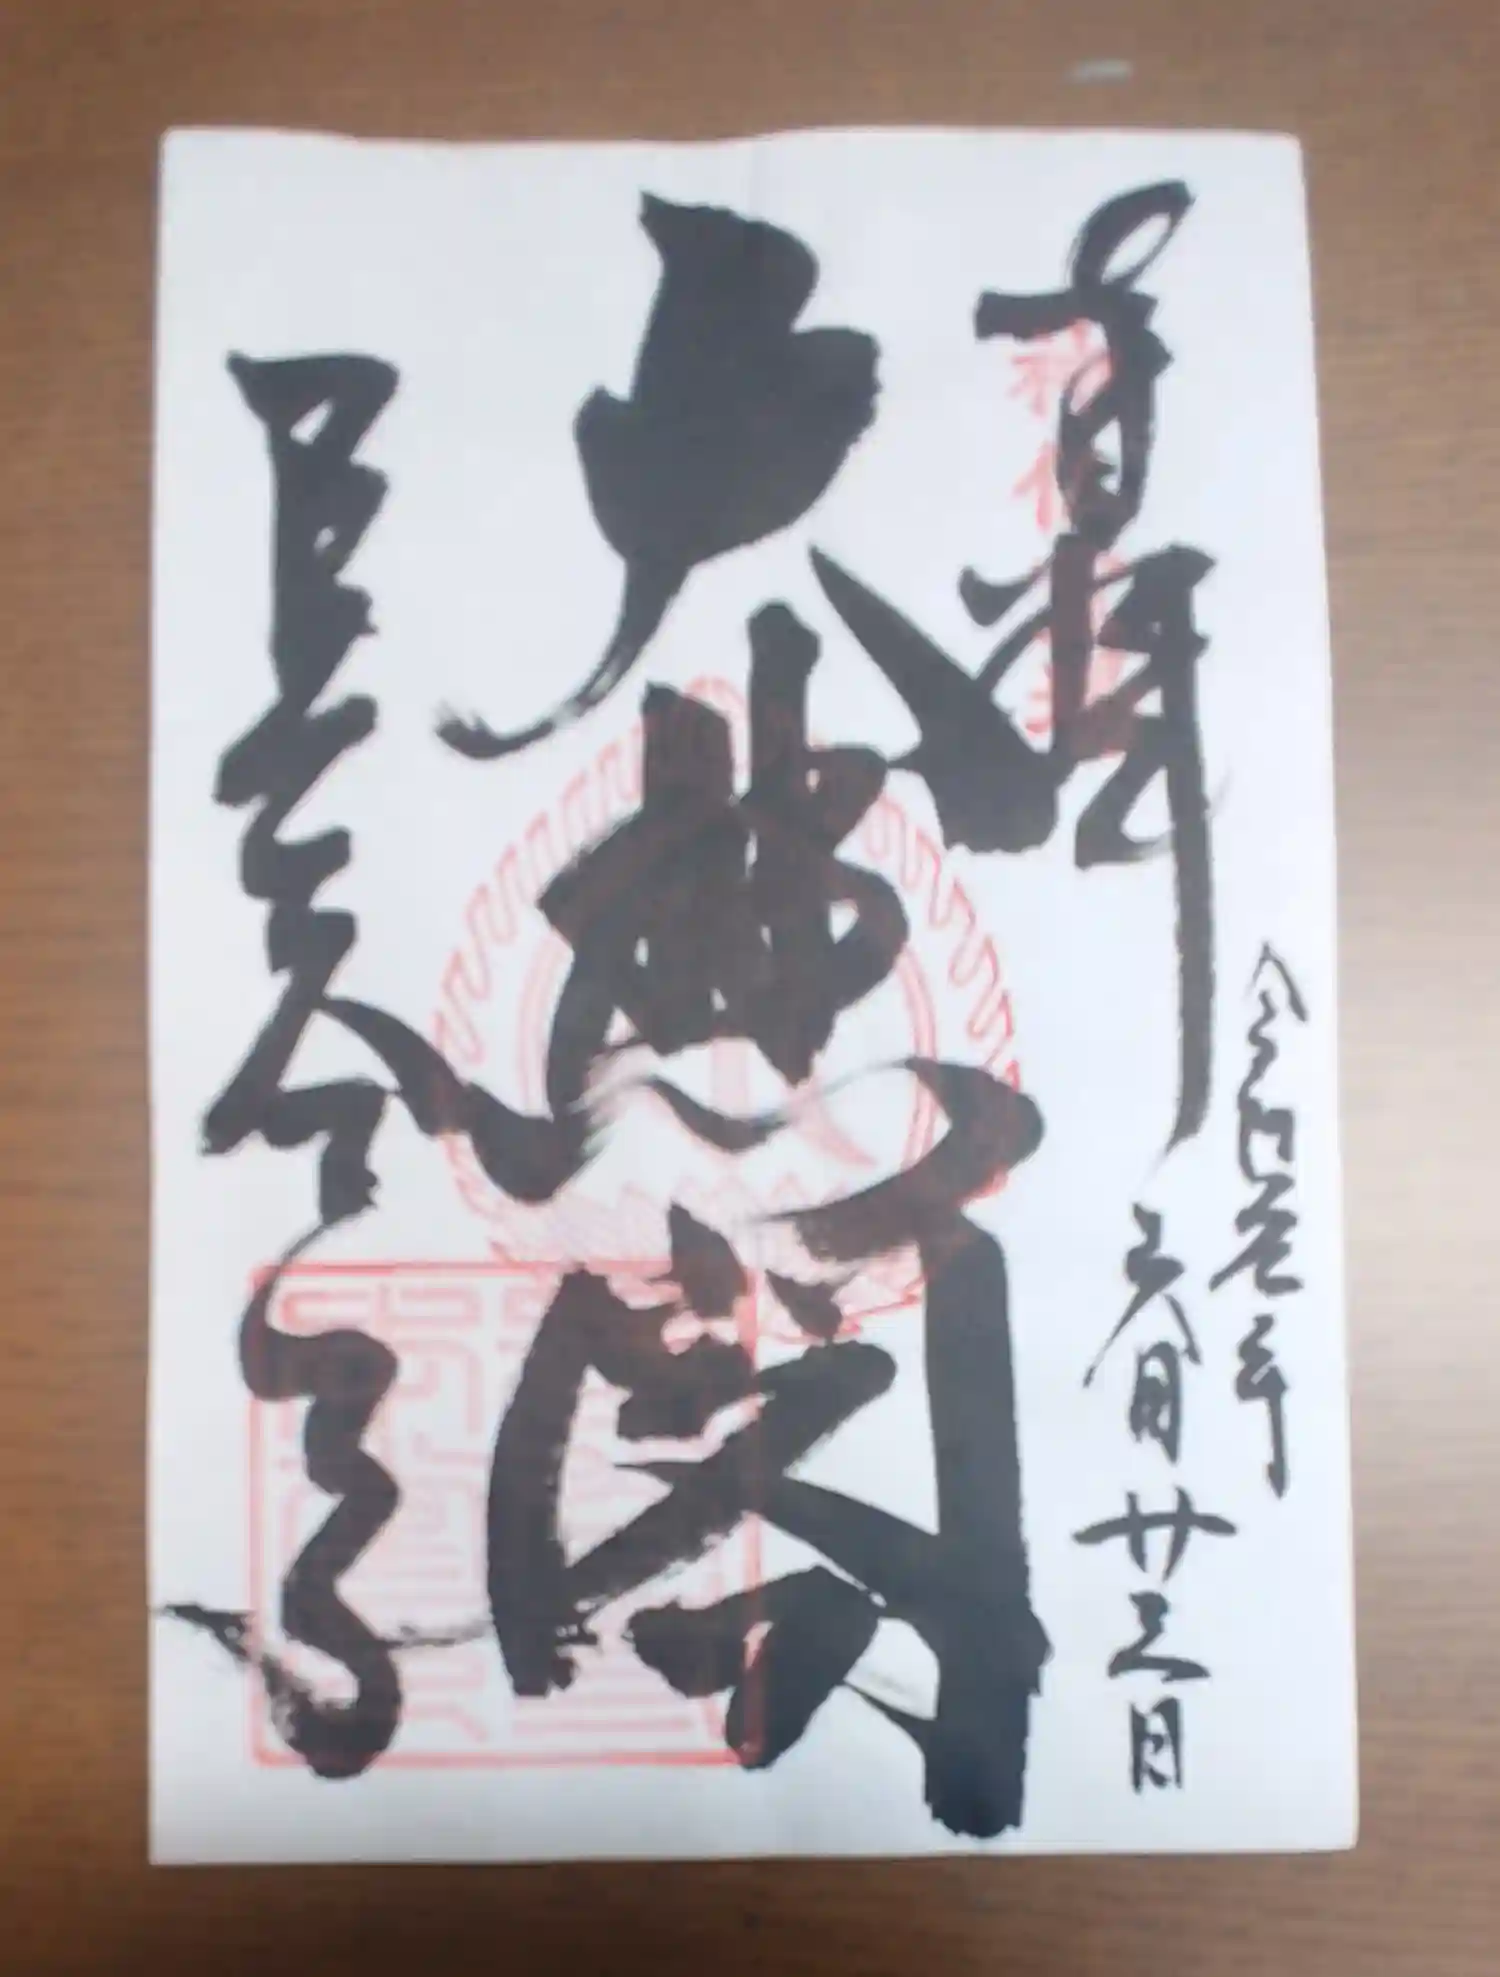 奉拝
令和元年
六月廿三日
大悲閣
長谷寺